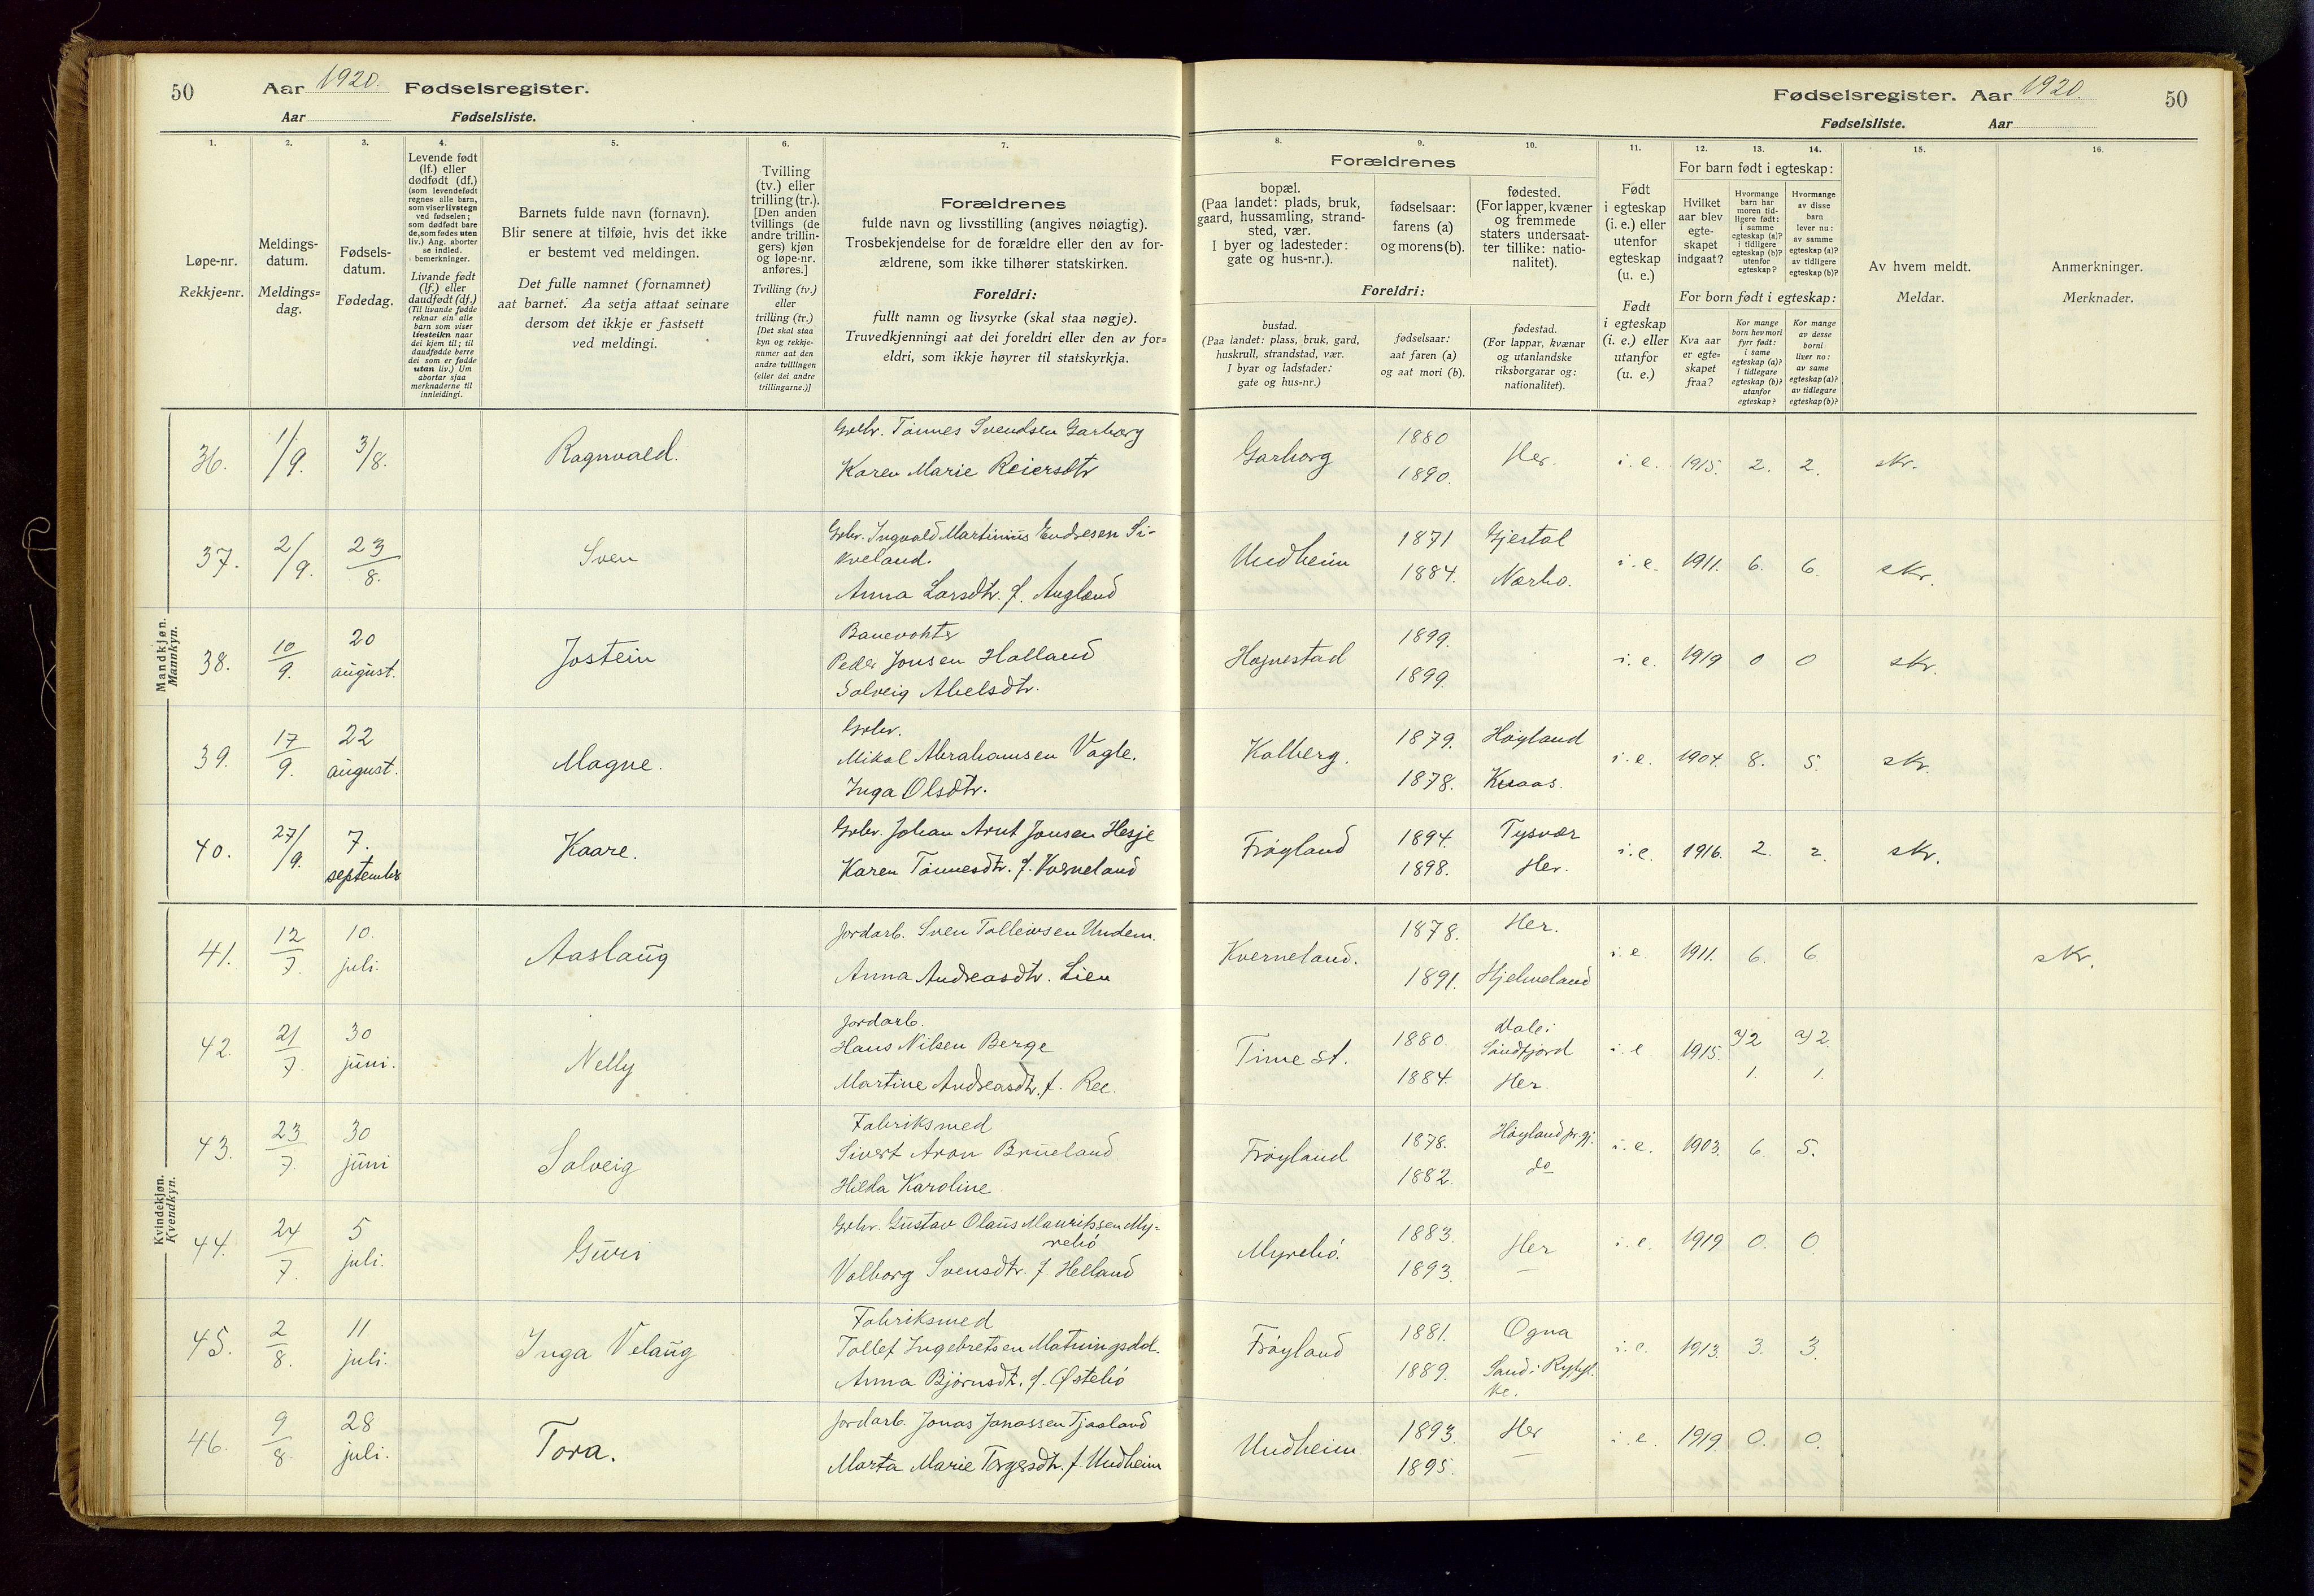 50
Aar 1920. Fødselsregister.
Aar Fødselsliste.
Fødselsregister. Aar 1920.
50
Fødselsliste. Aar
1.
Løpe-nr.
Rekkje=nr.
2.
Meldings-
datum.
Meldings=
dag.
3.
Fødsels-
datum.
Fødedag.
4.
Levende født
(lf.) eller
dødfødt (df.)
(som levendefødt
regnes alle barn,
som viser livstegn
ved fødselen;
som dødfødt bare
de, som fødes uten
liv.) Ang. aborter
se indled.
bemerkninger.
Livande født
(lf.) eller
daudfødt (df.)
(Til livande fødde
reknar ein alle
barn som viser
livsteikn naar
dei kjem til; til
daudfødde berre
dei som er fødde
utan liv.) Um
abortar sjaa
merknaderne til
innleidingi.
5.
Barnets fulde navn (fornavn).
Blir senere at tilføie, hvis det ikke
er bestemt ved meldingen.
Det fulle namnet (fornamnet)
aat barnet. Aa setja attaat seinare
dersom det ikkje er fastsett
ved meldingi.
6.
Tvilling
(tv.) eller
trilling (tr.).
[Den anden
tvillings (de
andre trillin-
gers) kjøn
og løpe-nr.
anføres.]
Tvilling (tv.)
eller
trilling (tr.)
[Det skal staa
kyn og rekkje-
numer aat den
andre tvillingen
(eller dei andre
trillingarne.)]
7.
Forældrenes
fulde navn og livsstilling (angives nøiagtig).
Trosbekjendelse for de forældre eller den av for-
ældrene, som ikke tilhører statskirken.
Foreldri:
fullt namn og livsyrke (skal staa nøgje).
Truvedkjenningi aat dei foreldri eller den av for=
eldri, som ikkje høyrer til statskyrkja.
Forældrenes
8.
bopæl.
(Paa landet: plads, bruk,
gaard, hussamling, strand-
sted, vær.
I byer og ladesteder:
gate og hus-nr.).
9.
fødselsaar:
farens (a)
og morens (b).
10.
fødested.
(For lapper, kvæner
og fremmede
staters undersaat-
ter tillike: natio-
nalitet).
Foreldri:
bustad.
(Paa landet: plass, bruk, gard,
huskrull, strandstad, vær.
I byar og ladstader:
gate og hus=nr.)
fødselsaar:
aat faren (a)
og aat mori (b).
fødestad.
(For lappar, kvænar
og utanlandske
riksborgarar og:
nationalitet).
11.
Født
i egteskap
(i. e.) eller
utenfor
egteskap
(u. e.)
Født
i egteskap
(i. e.) eller
utanfor
(u. e.)
For barn født i egteskap:
12.
Hvilket
aar blev
egte-
skapet
indgaat?
13.
Hvormange
barn har
moren tid-
ligere født:
i samme
egteskap (a)?
i tidligere
egteskap (b)?
utenfor
egteskap?
14.
Hvormange
av disse
barn
lever nu:
av samme
egteskap (a)?
av tidligere
egteskap (b)?
For born født i egteskap:
Kva aar
er egte=
skapet
fraa?
Kor mange
born hev mori
fyrr født:
i same
egteskap (a)?
i tidlegare
egteskap (b)?
utanfor
egteskap?
Kor mange
av desse
borni
liver no:
av same
egteskap (a)?
av tidlegare
egteskap (b)?
15.
Av hvem meldt.
Meldar.
16.
Anmerkninger.
Merknader.
Mandkjøn.
Mannkyn.
36. 1/9. 3/8. Ragnvald. Grbr. Tönnes Svendsen Garborg
Karen Marie Reiersdtr
Garborg 1880 1890. Her. i. e. 1915. 2. 2. skr.
37. 2/9. 23/8. Sven Grbr. Ingvald Martinius Endresen Si-
kveland.
Anna Larsdtr. f. Augland
Undheim 1871 1884. Gjestal Nærbo. i. e. 1911. 6. 6. skr.
38. 10/9. 20 august. Jostein Banevokter
Peder Jonsen Holland
Solveig Abelsdtr.
Hognestad 1899. 1899. i. e. 1919 0 0 skr.
39. 17/9. 22 august. Magne. Grbr.
Mikal Abrahamsen Vagle.
Inga Olsdtr.
Kalberg. 1879. 1878. Höyland i. e. 1904. 8. 5. skr.
40. 27/9. 7. september Kaare. Grbr. Johan Arnt Jonsen Hesje
Karen Tönnesdtr. f. Kverneland
Fröyland 1894. 1898. Tysvær Her. i. e. 1916. 2. 2. skr.
Kvindekjøn.
Kvendkyn.
41. 12/7. 10. juli. Aaslaug Jordarb. Sven Talleivsen Undem.
Anna Andreasdtr. Lien
Kverneland. 1878. 1891. Her. Hjelmeland i. e. 1911. 6. 6. skr.
42. 21/7. 30 juni. Nelly Jordarb.
Hans Nilsen Berge
Martine Andreasdtr. f. Ree.
Time st. 1880. 1884. Dale i Söndfjord Her. i. e 1915. a) 2 1. a) 2. 1.
43. 23/7. 30 juni Solveig Fabriksmed
Sivert Aron Brueland
Hilda Karoline.
Fröyland 1878. 1882. Höyland pr.gj. do i. e. 1903. 6. 5.
44. 24/7. 5 juli. Guri Grbr. Gustav Olaus Mauritssen My=
rebö
Valborg Svensdtr. f. Helland
Myrebö. 1883. 1893. Her i. e. 1919 0. 0.
45. 2/8. 11 juli. Inga Velaug Fabriksmed
Tollef Ingebretsen Matningsdal.
Anna Björnsdtr. f. Østebö
Fröyland 1881. 1889. Ogna Sand i Ryfyl.
ke. i. e. 1913. 3. 3.
46. 9/8. 28 juli. Tora. Jordarb. Jonas Janassen Tjaaland
Marta Marie Torgersdtr. f. Undheim
Undheim 1893. 1895. Her i. e. 1919 0. 0.